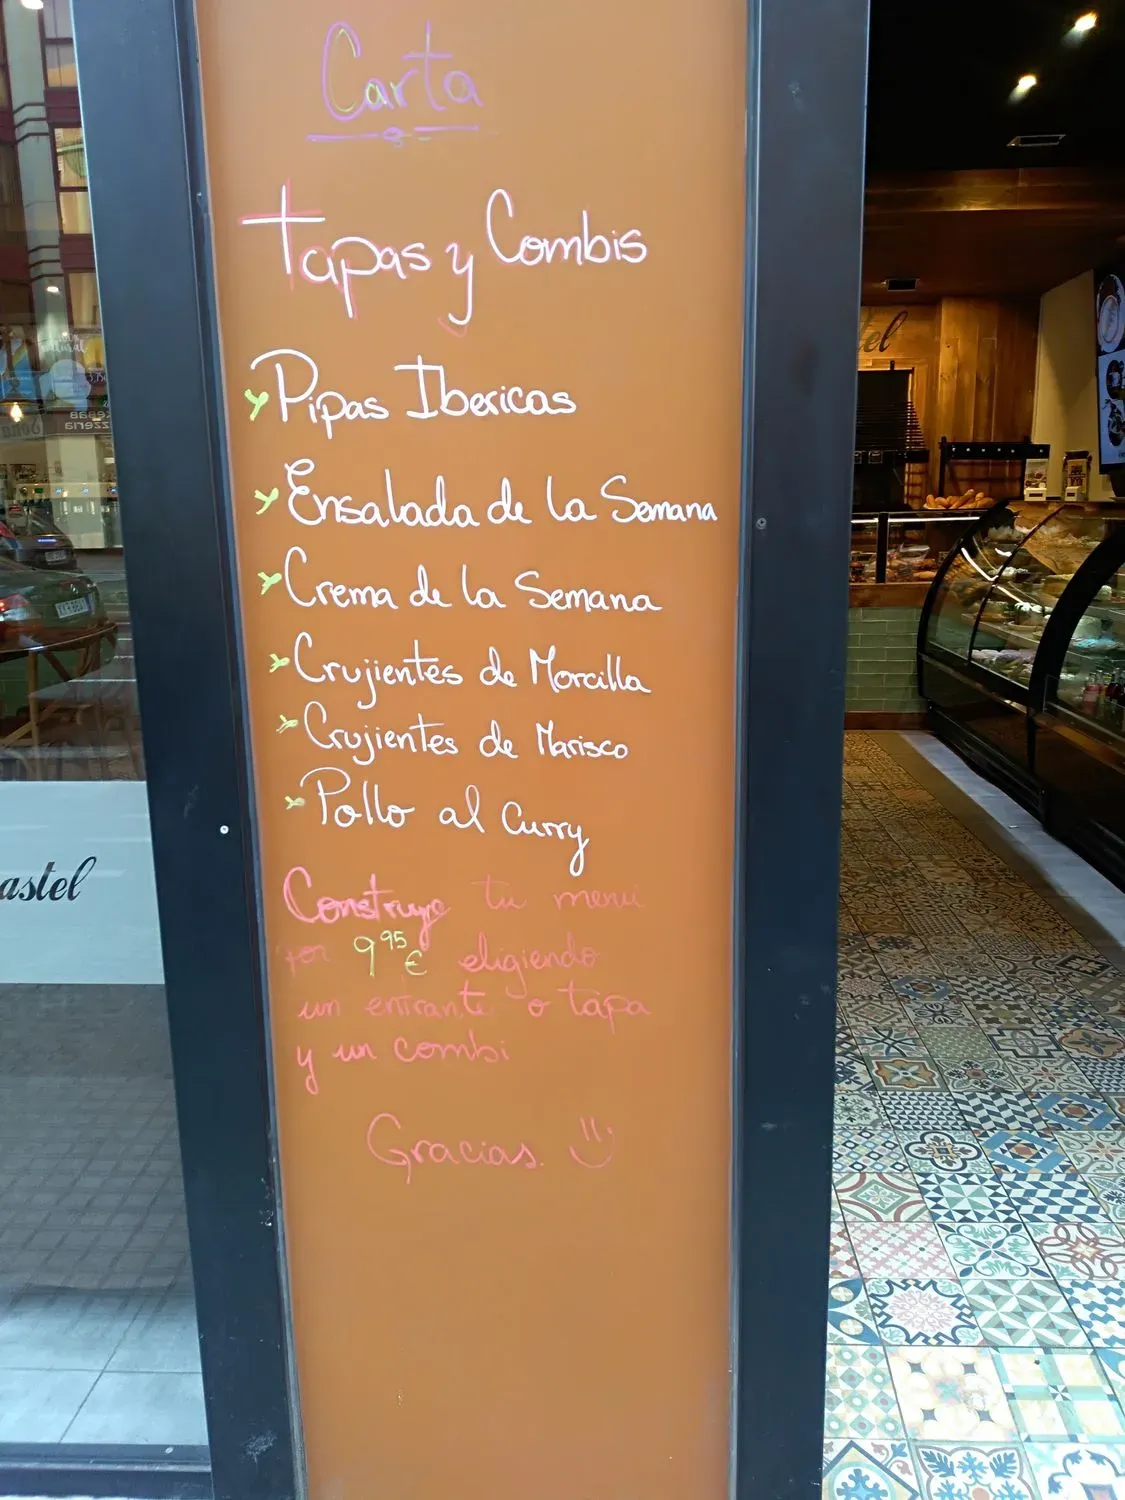 Carta
Tapas y Combis
Pipas Ibericas
Ensalada de la Semana
Crema de la Semana
Crujientes de Morcilla
Crujientes de Marisco
Pollo al Curry
Construye tu menú
por 9,95€ eligiendo
un entrante o tapa
y un combi
Gracias.
astel
tel